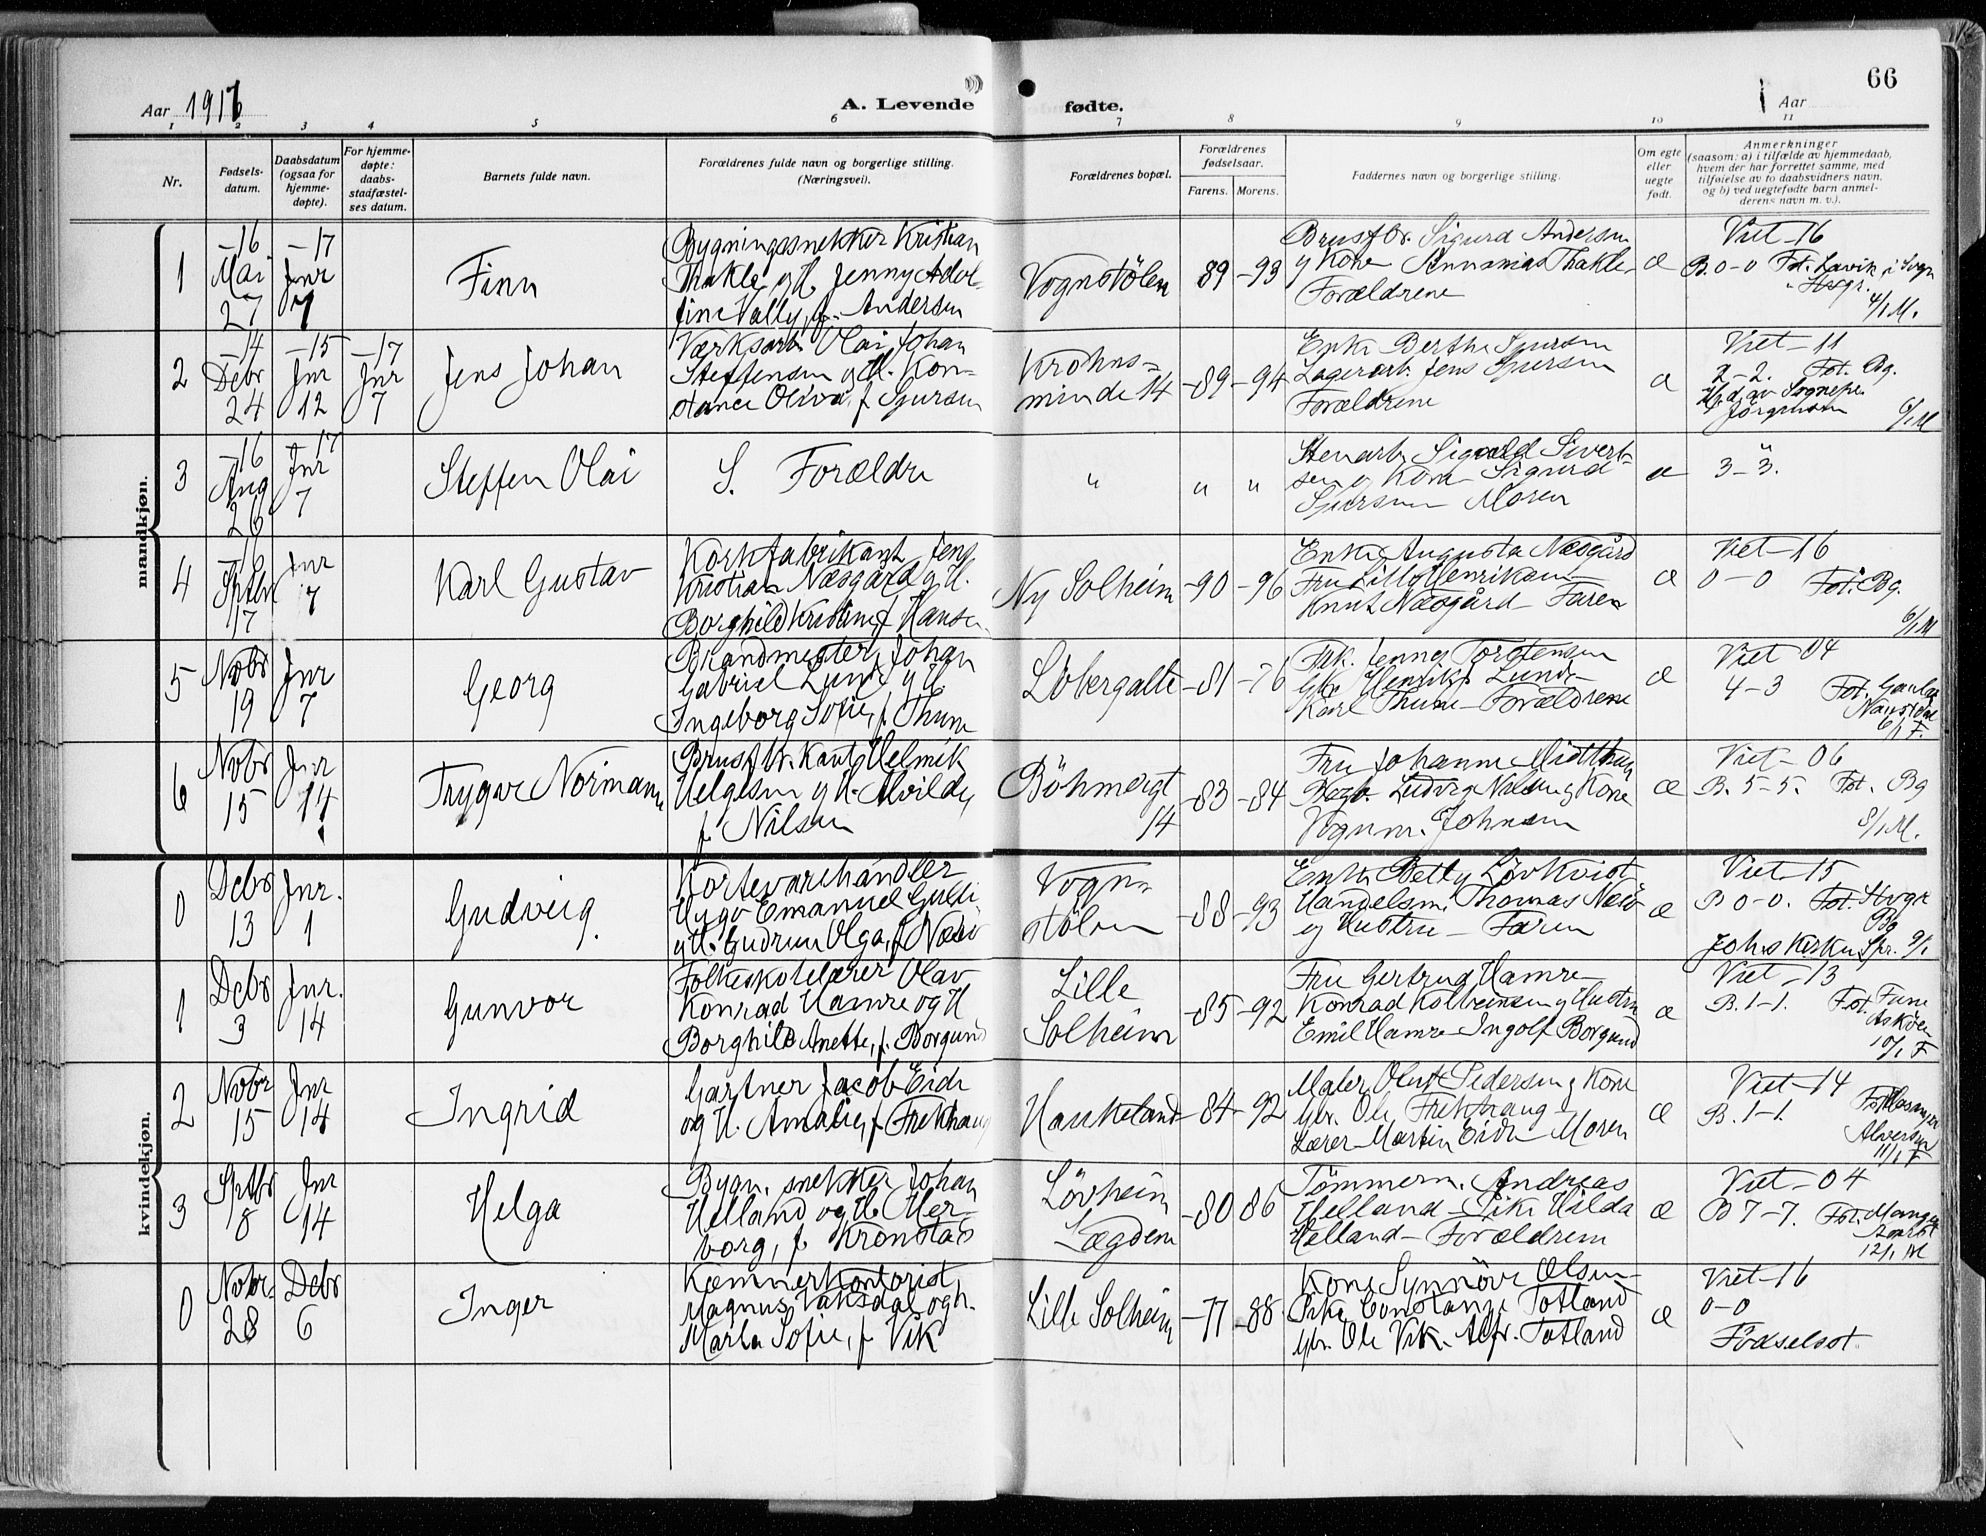 66
Aar 1916
A. Levende fødte.
Aar
1 2 3 4 5 6 7 8 9 10 11
Nr.
Fødsels-
datum.
Daabsdatum
(ogsaa for
hjemme-
døpte).
For hjemme-
døpte:
daabs-
stadfæstel-
ses datum.
Barnets fulde navn.
Forældrenes fulde navn og borgerlige stilling.
(Næringsvei).
Forældrenes bopæl.
Forældrenes
fødselsaar.
Farens. Morens.
Faddernes navn og borgerlige stilling.
Om egte
eller
uegte
født.
Anmerkninger
(saasom: a) i tilfælde av hjemmedaab,
hvem der har forrettet samme, med
tilføielse av to daabsvidners navn,
og b) ved uegtefødte barn anmel-
derens navn m. v.).
mandkjøn.
1
-16
Mai
27
-17
Jnr
7
Finn
Bygningssnekker Kristian
Thakle og H. Jenny Adol-
fine Vally, f. Andersen
Vognstölen
89 -93
Brusfbr. Sigurd Andersen
og Kone Annanias Thakle
Forældrene
æ
Viet -16
B. 0-0 Fot. Lavik i Sogn
4/1 M.
2
-14
Debr
24
-15
Jnr
12
-17
Jnr
7
Jens Johan
Værksarb. Olai Johan
Steffensen og H. Kon-
stance Oliva, f. Sjursen
Krohns-
minde 14
-89 -94
Enke Berthe Sjursen
Lagerarb. Jens Sjursen
Forældrene
æ
Viet -11
2-2. Fot. Bg.
Hj.d. av Sognepr.
Jörgensen
6/1 M
3
-16
Aug
26
-17
Jnr
7
Steffen Olai
S. Forældre
" " "
Stenarb. Sigvald Sivert-
sen og Kone Sigurd
Sjursen Moren
æ
"
3-3.
4
-16
Sptbr
17
Jnr
7
Karl Gustav
Korkfabrikant Jens
Kristian Næsgård og H.
Borghild Kristine, f Hansen
Ny Solheim
-90 -96
Enke Augusta Næsgård
Fru Lilly Henriksen
Knut Næsgård - Faren
æ
Viet -16
0-0 Fot. Bg.
6/1 M
5
Novbr
19
Jnr
7
Georg
Brandmester Johan
Gabriel Lund og H
Ingeborg Sofie, f. Thune
Löbergalte
-81 -76
Frk. Jenny Torstensen
Gbr. Henrik Lund
Karl Thune - Forældrene
æ
Viet 04
4-3 Fot. Gaular
Naustdal
6/1 F.
6
Novbr
15
Jnr
14
Trygve Normann
Brusfbr. Kant Helmik
Helgesen og H. Alvilde,
f. Nilsen
Böhmergt
14
-83 -84
Fru Johanne Midtthun
Bagb. Ludvig Nilsen og Kone
Vognm. Johnsen
æ
Viet -06
B. 5-5. Fot. Bg
8/1 M.
kvindekjøn.
0
Debr
13
Jnr.
1
Gudveig.
Kortevarehandler
Hugo Emanuel
og H. Gudrun Olga, f. Næss
Vogn-
stölen
-88 -93
Enke Betty Lövkvist
Handelsm. Thomas Næss
og Hustru - Faren
æ
Viet -15
B 0-0. Fot.
Bg
Johs Kirken Spr. 9/1
1
Debr
3
Jnr.
14
Gunvor
Folkeskolelærer Olav
Konrad Hamre og H
Borghild Anette, f. Borgund
Lille
Solheim
-85 -92
Fru Gertrud Hamre
Konrad Kolbeinsen og Hustru
Emil Hamre - Ingolf Borgund
æ
Viet -13
B. 1-1. Fot. Fane
Asköen
10/1 F
2
Novbr
15
Jnr
14
Ingrid
Gartner Jacob Eide
og H. Amalie, f. Frekhaug
Haukeland
-84 -92
Maler Oluf Pedersen og Kone
Gbr. Ole Frekhaug
Lærer Martin Eide - Moren
æ
Viet -14
B. 1-1. Fot. Hosanger
Alversund
11/1 F
3
Sptbr
18
Jnr
14
Helga
Bygn. snekker Johan
Helland og H. Her-
borg, f. Kronstad
Lövheim
Lægdene
-80 86
Tömmerm. Andreas
Helland - Pike Hilda
Helland - Forældrene
æ
Viet -04
B 7-7. Fot. Manger
12/1 M
0
Novbr.
28
Debr
6
Inger
Kæmnerkontorist
Magnus Vaksdal og h.
Marta Sofie, f. Vik
Lille Solheim
-77 -88
Kone Synnöve Olsen
Pike Constance Totland
Gbr. Ole Vik - Alfr. Totland
æ
Viet -16
0-0
Födselsst.